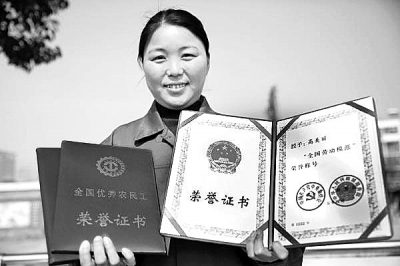 全国优秀农民工
荣誉证书
荣誉证书
授予：高美丽
“全国劳动模范”
荣誉称号